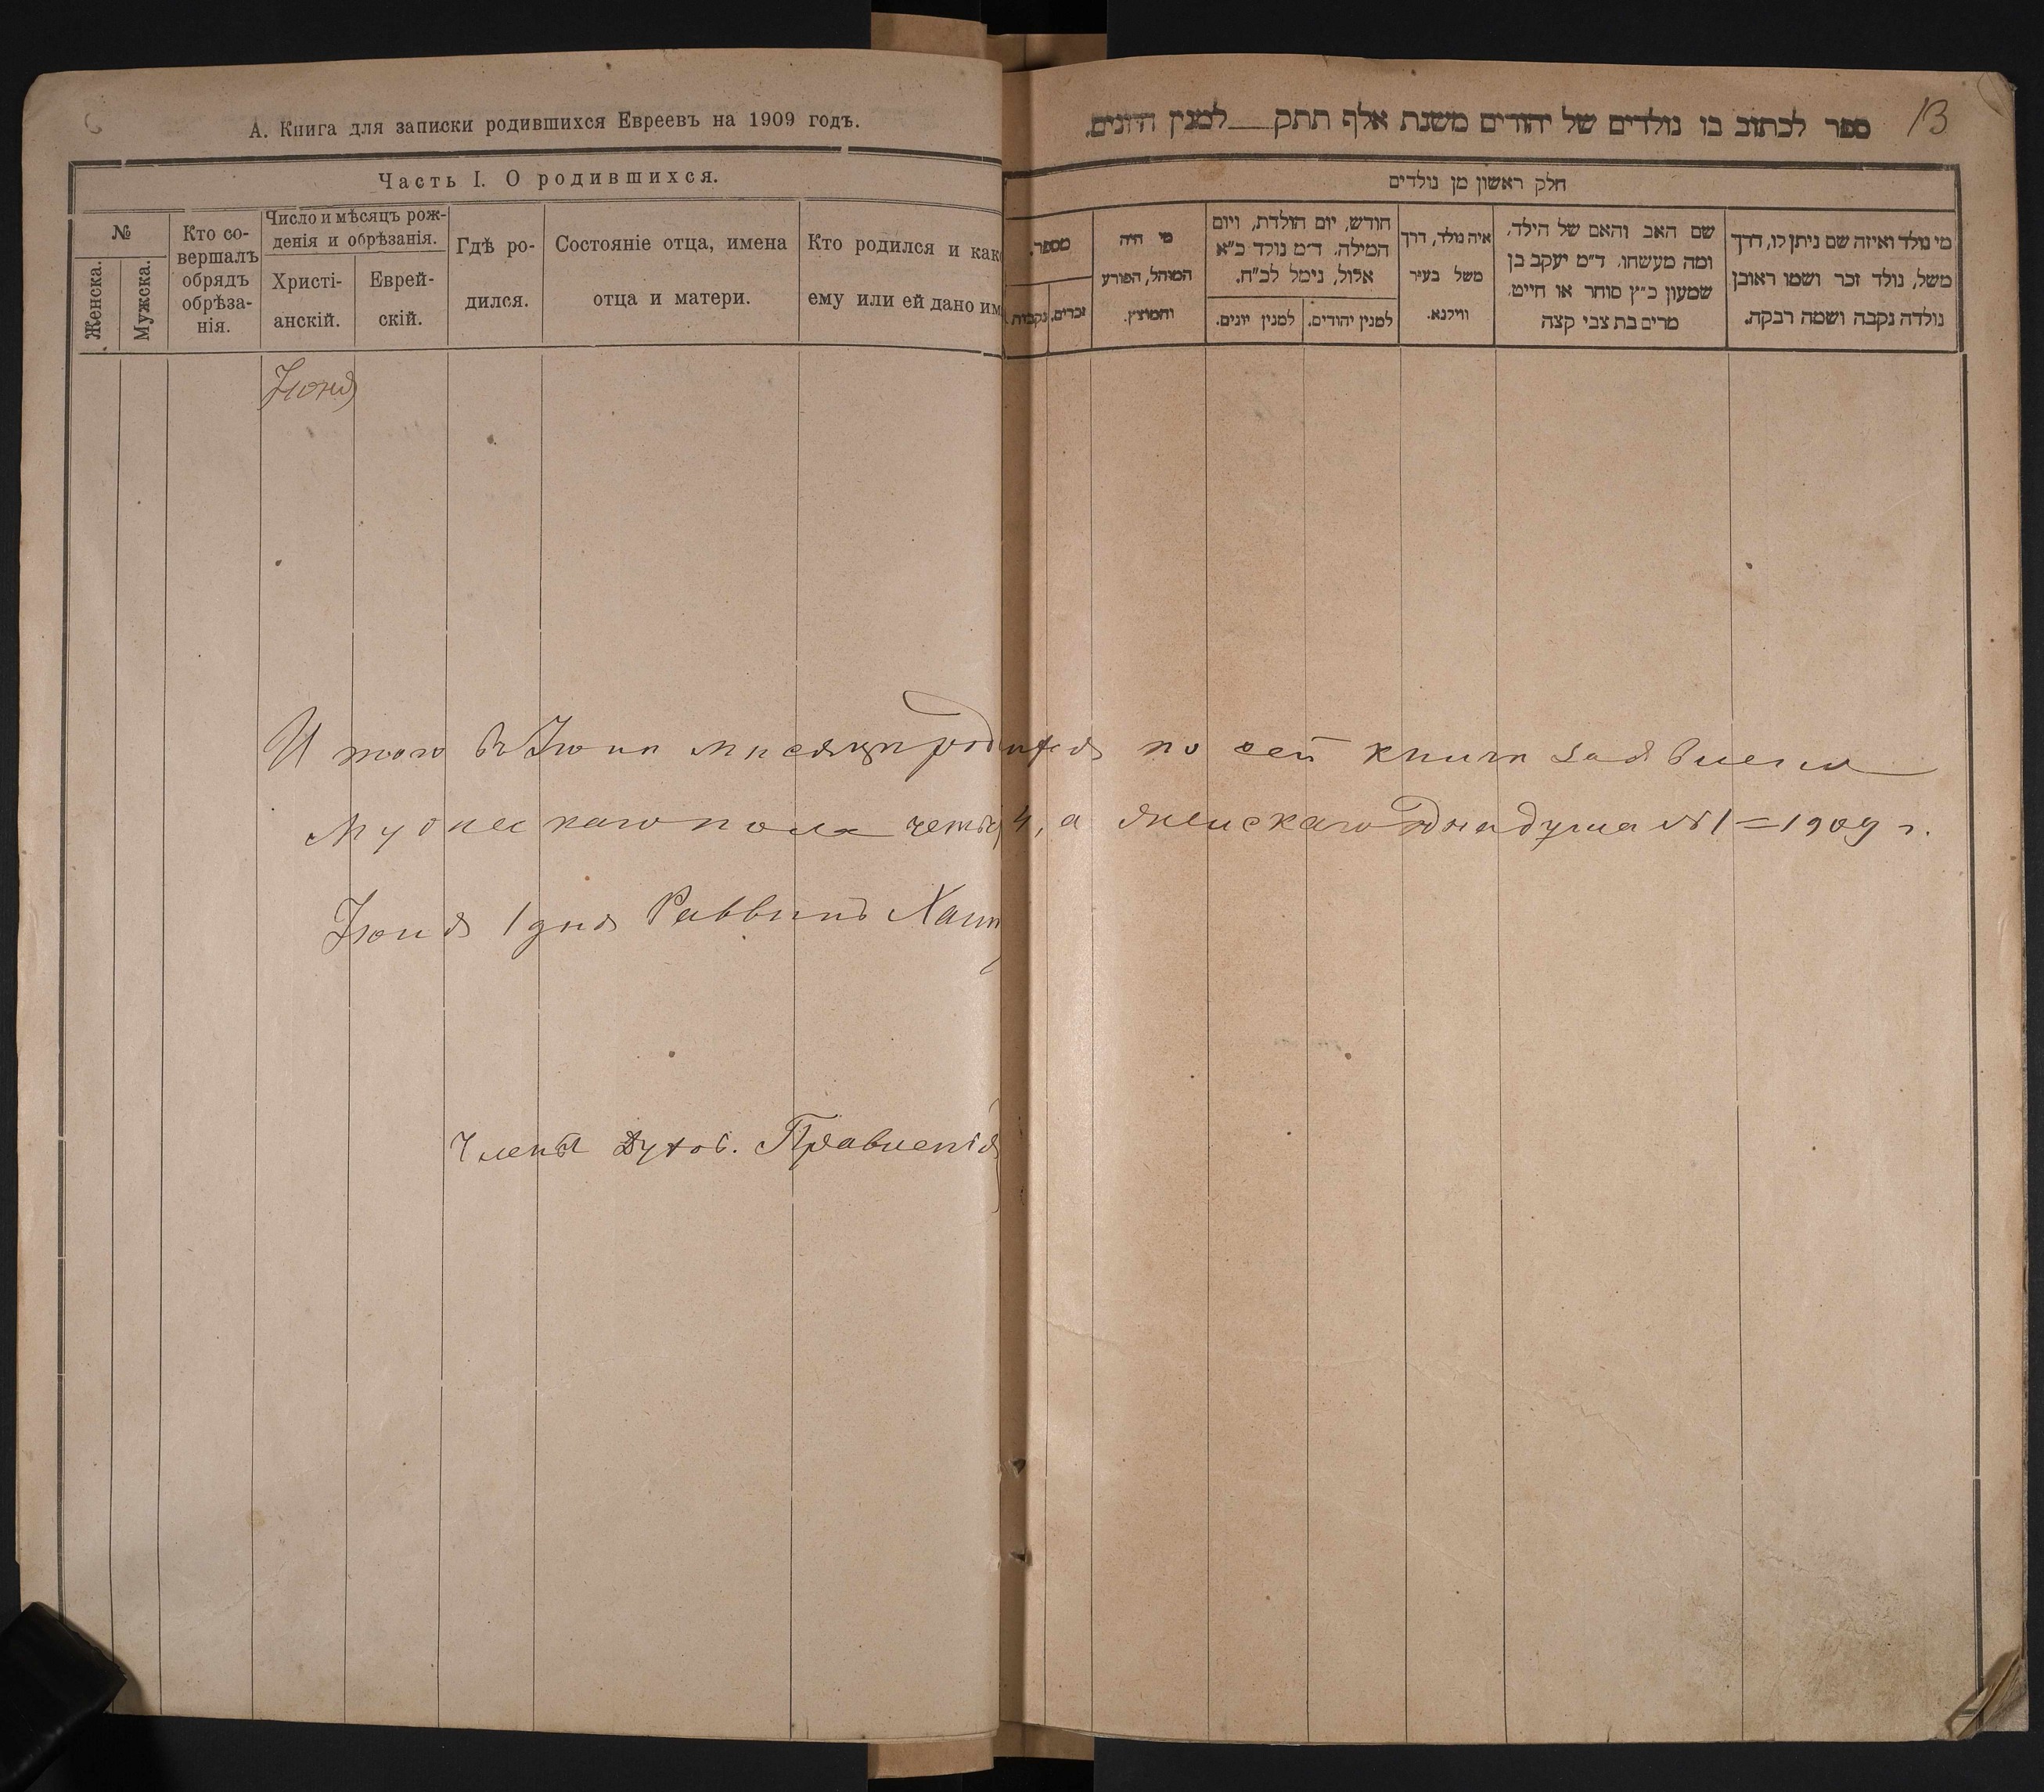 А. Книга для записки родившихся Евреевъ на 1909 годъ.
Часть I. О родившихся.
№
Женска.
Мужска.
Кто со-
вершалъ
обрядъ
обрѣза-
нія.
Число и мѣсяцъ рож-
денія и обрѣзанія.
Христі-
анскій.
Еврей-
скій.
Гдѣ ро-
дился.
Состояніе отца, имена
отца и матери.
Кто родился и как
ему или ей дано им
Іюня
13
ספר לכתוב בו נולדים של יהודים משנת אלף תתק __ למנין היונים.
חלק ראשון מן נולדים
מי נולד ואיזה שם ניתן לו, דרך
משל, נולד זכר ושמו ראובן
נולדה נקבה ושמה רבקה.
שם האב והאם של הילד,
ומה מעשהו, ד״מ יעקב בן
שמעון כ״ץ סוחר או חייט,
מרים בת צבי קצה
איה נולד, דרך
משל בעיר
ווילנא.
חודש, יום הולדת, ויום
המילה. ד״מ נולד כ״א
אלול, נימל לכ״ח.
למנין יהודים.
למנין יונים.
מי היה
המוהל, הפורע
והמוצץ.
מספר.
זכרים.
נקבות
И того въ Іюнѣ мѣсяцѣ по сей книгѣ
Мужескаго пола 4, а женскаго одна душа №1 = 1909 г.
Іюня 1 дня Раввинъ
Члены Духов. Правленія